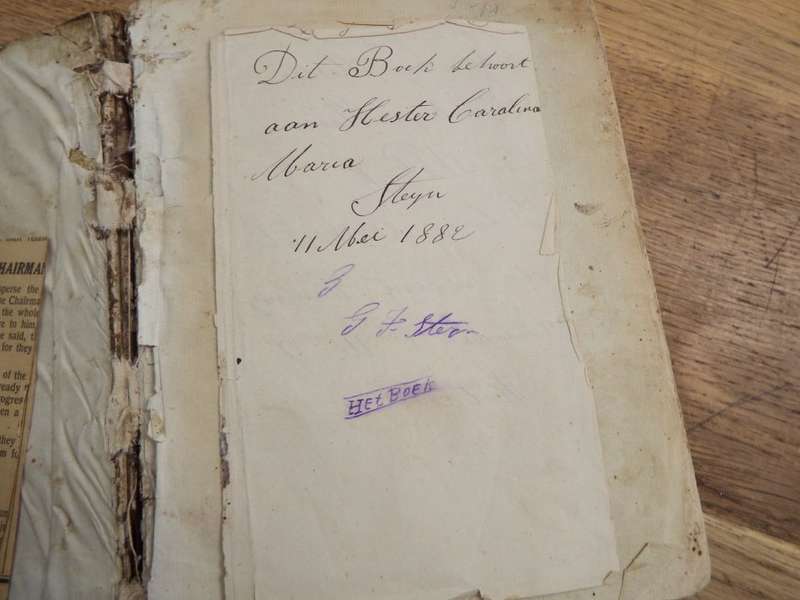 Dit Boek behoort
aan Hester Caralina
Maria
Steyn
11 Mei 1882
G F Steyn
HEt BOEK
HAIRMA
sperse the
e Chairma
the whole
re to him,
e said, t
for they
of the
ready
rogres
en a
they
m fo